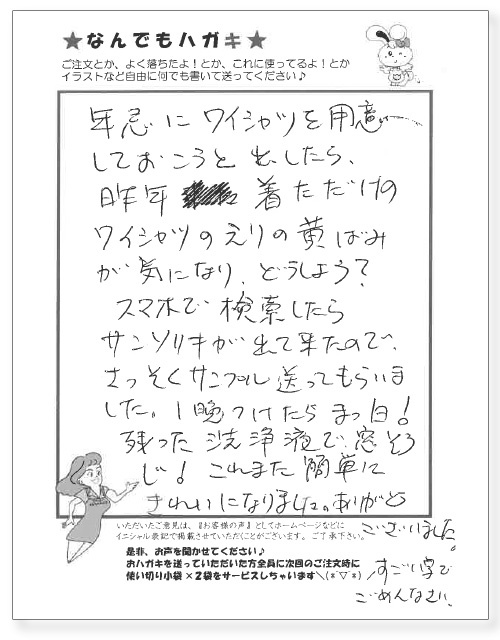 ★なんでもハガキ★
ご注文とか、よく落ちたよ！とか、これに使ってるよ！とか
イラストなど自由に何でも書いて送ってください♪
年忌にワイシャツを用意
しておこうと出したら、
昨年 着ただけの
ワイシャツのえりの黄ばみ
が気になり、どうしよう？
スマホで検索したら
サンソリキが出て来たので、
さっそくサンプル送ってもらいま
した。1晩つけたらまっ白！
残った洗浄液で、窓そう
じ！これまた簡単に
きれいになりました。ありがとう
ございました。
すごい字で
ごめんなさい。
いただいたご意見は、『お客様の声』としてホームページなどに
イニシャル表記で掲載させていただくことがございます。ご了承下さい。
是非、お声を聞かせてください♪
おハガキを送っていただいた方全員に次回のご注文時に
使い切り小袋×2袋をサービスしちゃいます＼(*´▽｀*)／